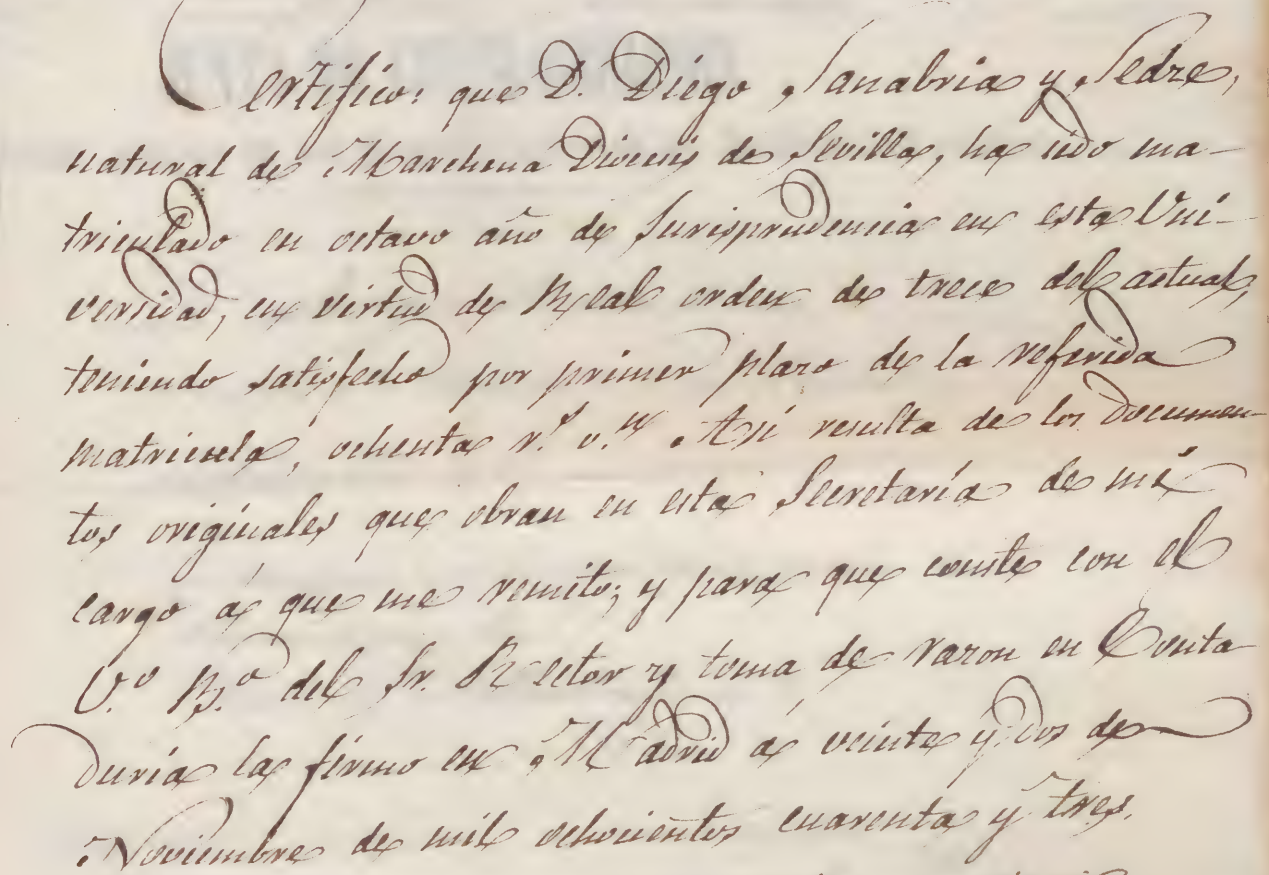 Certifico: que D. Diego Sanabria y Sedze,
natural de Marchena Diocesis de Sevilla, ha sido ma-
triculado en octavo año de Jurisprudencia en esta Uni-
versidad, en virtud de Real orden de trece del actual,
teniendo satisfecho por primer plazo de la referida
matricula, ochenta r.s v.n Asi resulta de los documen-
tos originales que obran en esta Secretaría de mi
cargo á que me remito; y para que conste con el
V.o B.o del Sr. Rector y toma de razon en Conta-
duria la firmo en Madrid á veinte y dos de
Noviembre de mil ochocientos cuarenta y tres.